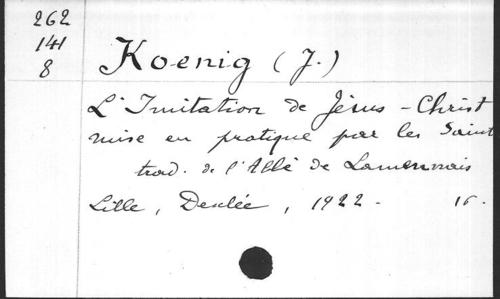 262
141
8
Koenig (J.)
L'Imitation de Jésus-Christ
mise en pratique par les Saint
trad. de l'Abbé de Lamennais
Lille, Desclée, 1922. 16.